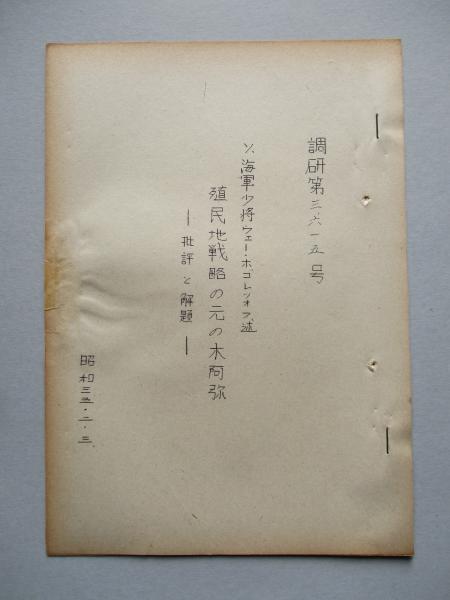 調研第三六一五号
ソ、海軍少将ウェー・ボゴレツオフ、述
殖民地戦略の元の木阿弥
―批評と解題―
昭和三五・二・三、